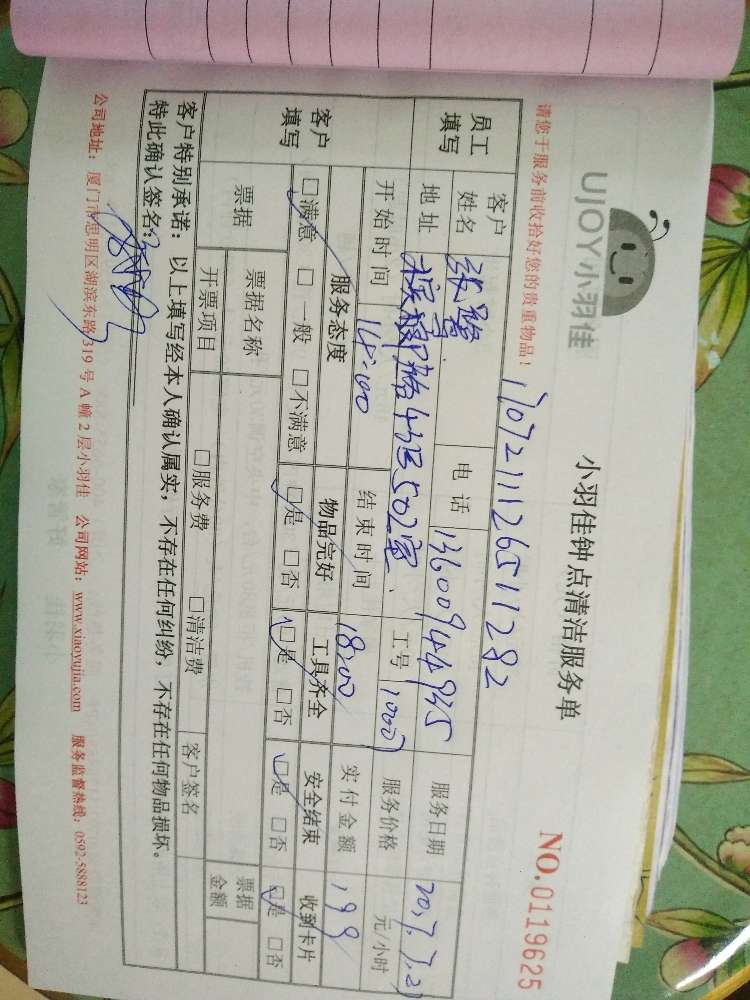 UJOY小羽佳
小羽佳钟点清洁服务单
NO.0119625
请您于服务前收拾好您的贵重物品！
1707211126511282
员工填写
客户姓名
电话 13600944935
服务日期
地址
43 502室
工号
服务价格 元/小时
开始时间 14:00 结束时间 18:00 实付金额 199
客户填写
服务态度 物品完好 工具齐全 安全结束 收到卡片
□满意 □一般 □不满意 □是 □否 □是 □否 □是 □否 □是 □否
票据 票据名称 □服务费 □清洁费 客户签名 票据金额
开票项目
客户特别承诺：以上填写经本人确认属实，不存在任何纠纷，不存在任何物品损坏。
特此确认签名：
公司地址：厦门市思明区湖滨东路319号A幢2层小羽佳 公司网站：www.xiaoyujia.com 服务监督热线：0592-5888123